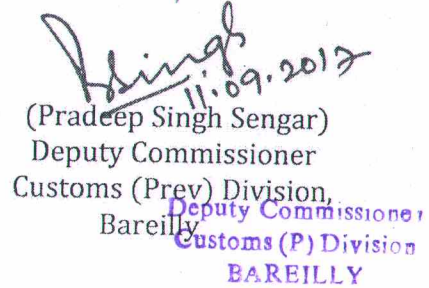 PSingh
11.09.2017
(Pradeep Singh Sengar)
Deputy Commissioner
Customs (Prev) Division,
Bareilly
Deputy Commissioner
Customs (P) Division
BAREILLY